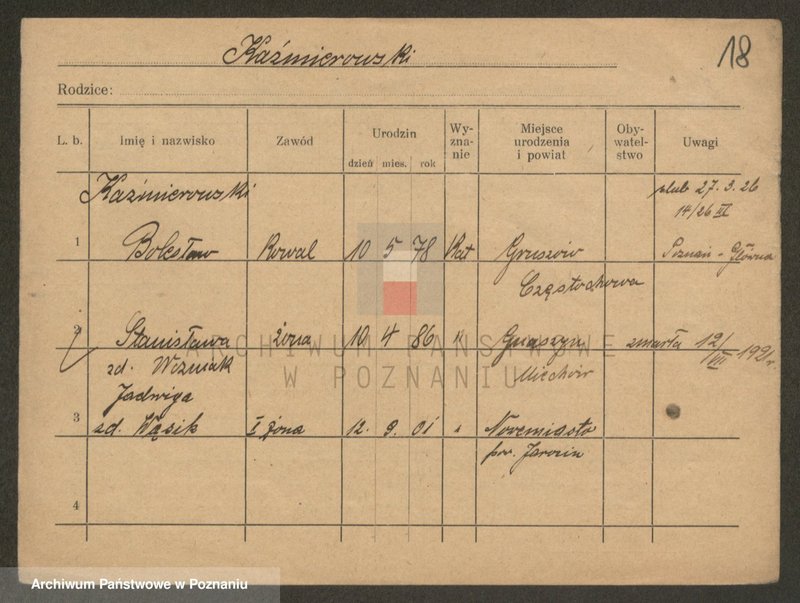 Kaźmierowski
18
Rodzice:
L. b. Imię i nazwisko Zawód Urodzin dzień mies. rok Wy- zna- nie Miejsce urodzenia i powiat Oby- watel- stwo Uwagi
Kaźmierowski ślub 27.3.26
14/26 III
1 Bolesław Kowal 10 5 78 Kat Gruszów Poznań - Główna
Częstochowa
2 Stanisława żona 10 4 86 " zmarła 12/VII 1921r
zd. Woźniak Miechów
Jadwiga
3 zd. Wąsik żona 12. 9. 01 " Novemiasto
pow. Jarocin
4
ARCHIWUM PAŃSTWOWE
W POZNANIU
Archiwum Państwowe w Poznaniu